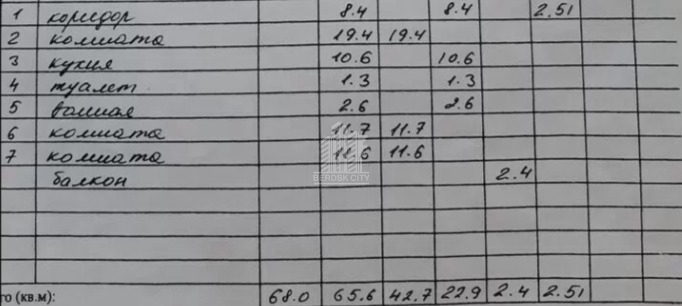 1 коридор 8.4 8.4 2.51
2 комната 19.4 19.4
3 кухня 10.6 10.6
4 туалет 1.3 1.3
5 ванная 2.6 2.6
6 комната 11.7 11.7
7 комната 11.6 11.6
BERDSK CITY
балкон 2.4
го (кв.м): 68.0 65.6 42.7 22.9 2.4 2.51